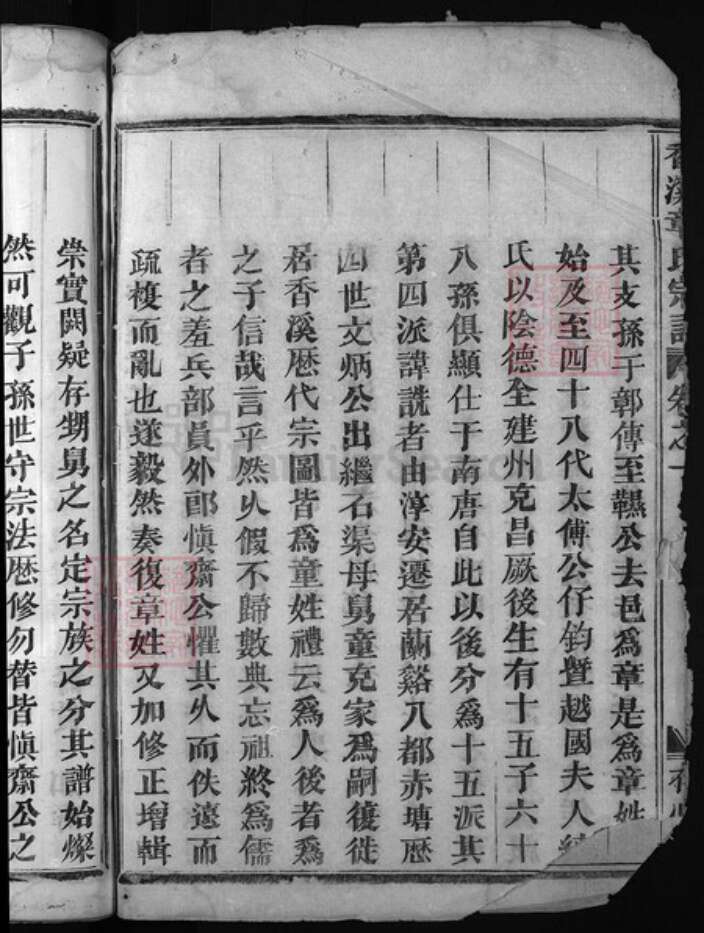 香溪章氏宗譜 卷之一
其支孫于鄣傳至韅公去邑爲章是爲章姓
始及至四十八代太傅公仔鈞暨越國夫人練
氏以陰德全建州克昌厥後生有十五子六十
八孫俱顯仕于南唐自此以後分爲十五派其
第四派諱詵者由淳安遷居蘭谿八都赤塘歷
四世文炳公出繼石渠母舅童克家爲嗣復徙
居香溪歷代宗圖皆爲童姓禮云爲人後者爲
之子信哉言乎然久假不歸數典忘祖終爲儒
者之羞兵部員外郎愼齋公懼其久而佚遠而
疏複而亂也遂毅然奏復章姓又加修正增輯
崇實闕疑存甥舅之名定宗族之分其譜始燦
然可觀子孫世守宗法歷修勿替皆愼齋公之
FamilySearch